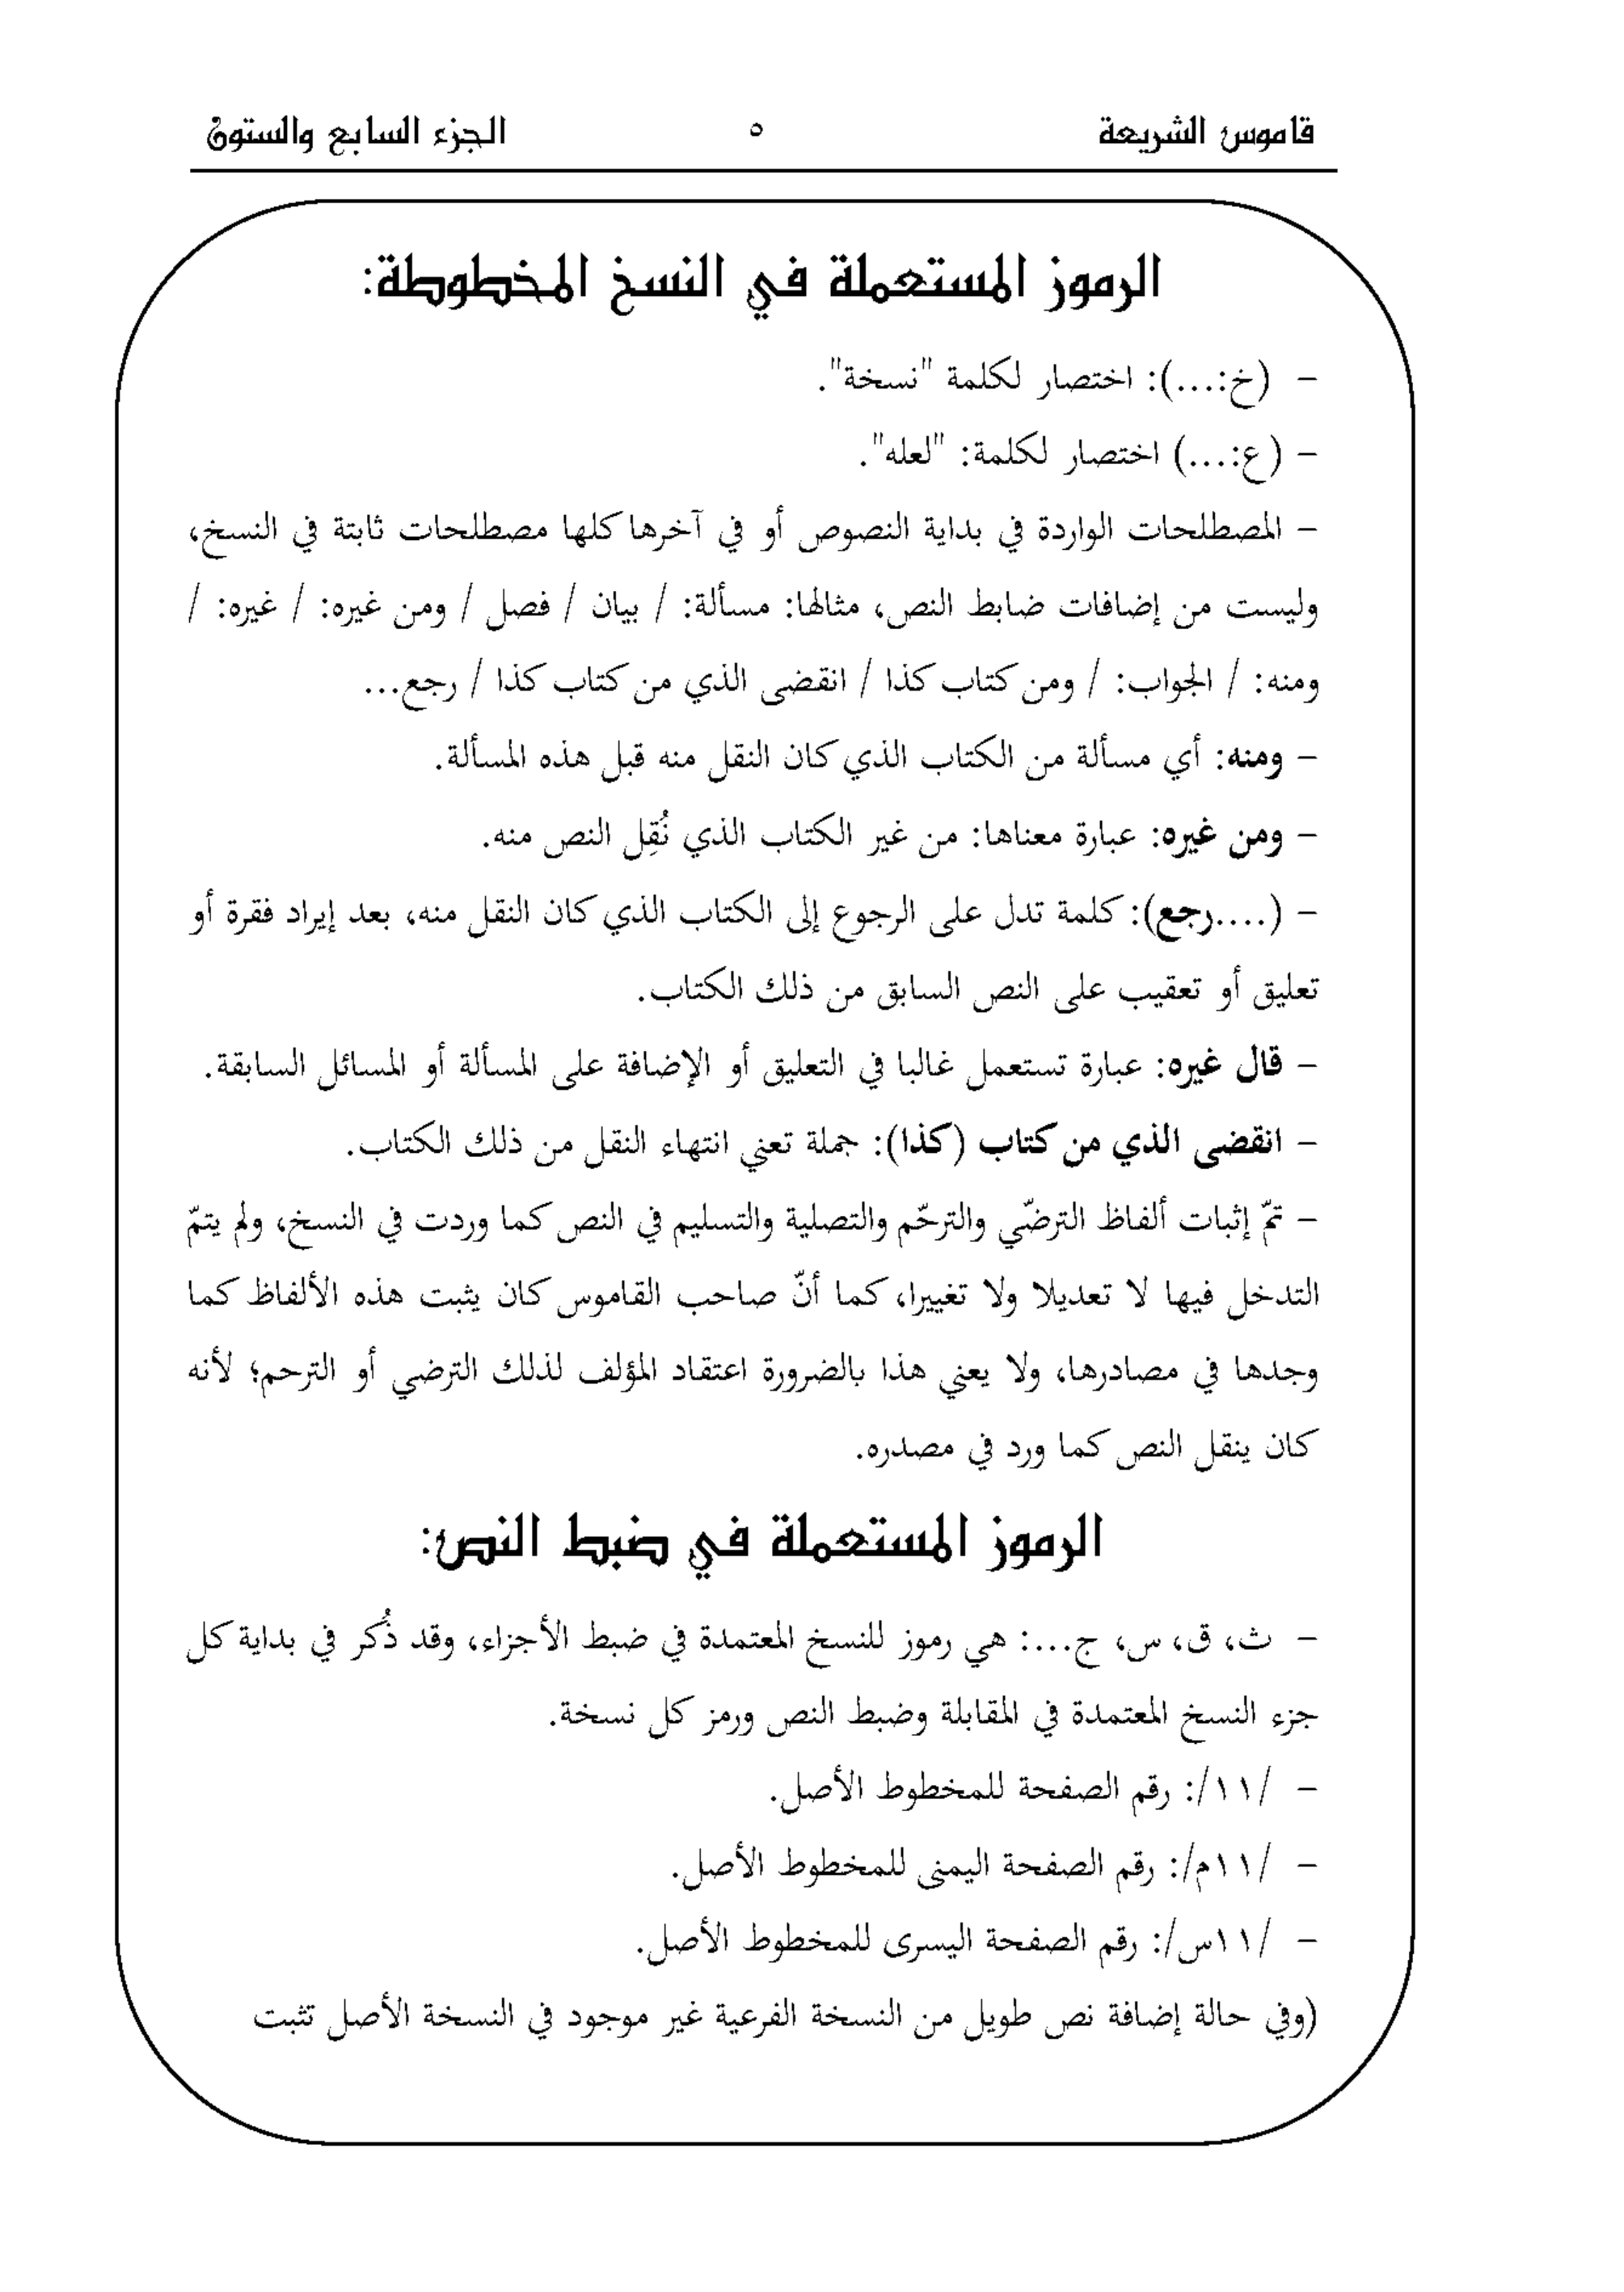 قاموس الشريعة ٥ الجزء السابع والستون
الرموز المستعملة في النسخ المخطوطة:
- (خ:...): اختصار لكلمة "نسخة".
- (ع:...) اختصار لكلمة: "لعله".
- المصطلحات الواردة في بداية النصوص أو في آخرها كلها مصطلحات ثابتة في النسخ،
وليست من إضافات ضابط النص، مثالها: مسألة: / بيان / فصل / ومن غيره: / غيره: /
ومنه: / الجواب: / ومن كتاب كذا / انقضى الذي من كتاب كذا / رجع...
- ومنه: أي مسألة من الكتاب الذي كان النقل منه قبل هذه المسألة.
- ومن غيره: عبارة معناها: من غير الكتاب الذي نُقِل النص منه.
- (....رجع): كلمة تدل على الرجوع إلى الكتاب الذي كان النقل منه، بعد إيراد فقرة أو
تعليق أو تعقيب على النص السابق من ذلك الكتاب.
- قال غيره: عبارة تستعمل غالبا في التعليق أو الإضافة على المسألة أو المسائل السابقة.
- انقضى الذي من كتاب (كذا): جملة تعني انتهاء النقل من ذلك الكتاب.
- تمّ إثبات ألفاظ الترضّي والترحّم والتصلية والتسليم في النص كما وردت في النسخ، ولم يتمّ
التدخل فيها لا تعديلا ولا تغييرا، كما أنّ صاحب القاموس كان يثبت هذه الألفاظ كما
وجدها في مصادرها، ولا يعني هذا بالضرورة اعتقاد المؤلف لذلك الترضي أو الترحم؛ لأنه
كان ينقل النص كما ورد في مصدره.
الرموز المستعملة في ضبط النص:
- ث، ق، س، ج...: هي رموز للنسخ المعتمدة في ضبط الأجزاء، وقد ذُكر في بداية كل
جزء النسخ المعتمدة في المقابلة وضبط النص ورمز كل نسخة.
- /١١/: رقم الصفحة للمخطوط الأصل.
- /١١م/: رقم الصفحة اليمنى للمخطوط الأصل.
- /١١س/: رقم الصفحة اليسرى للمخطوط الأصل.
(وفي حالة إضافة نص طويل من النسخة الفرعية غير موجود في النسخة الأصل تثبت